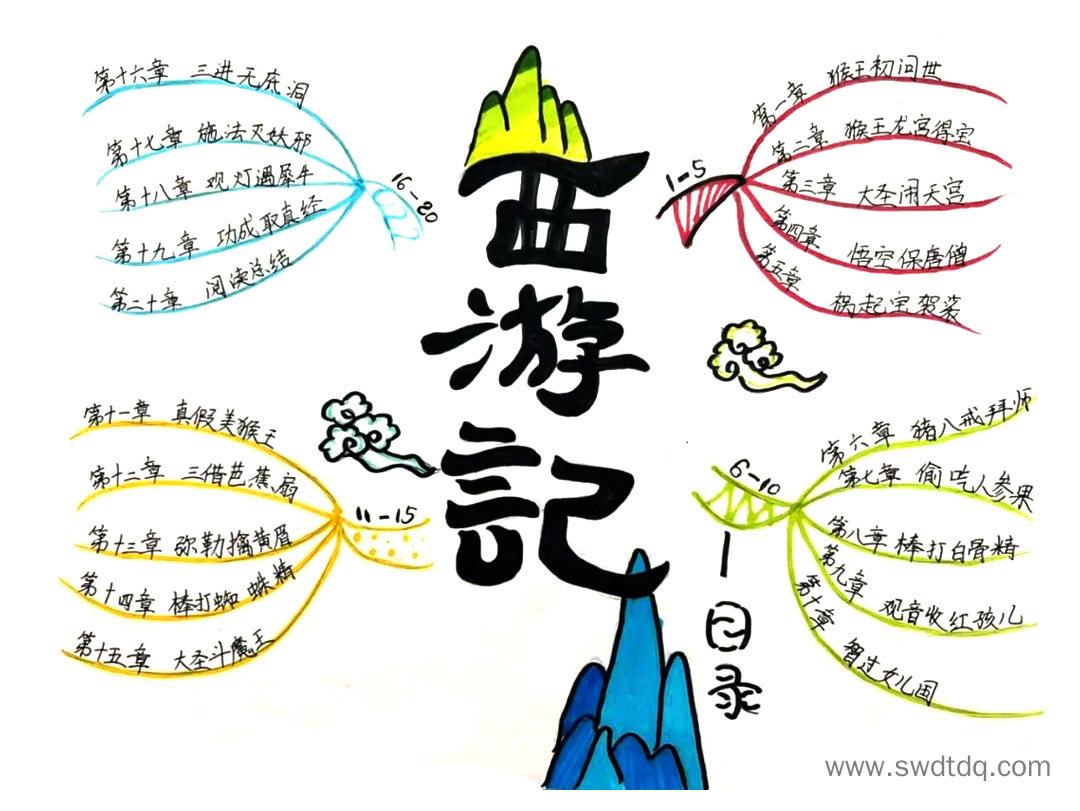 西
游
記
一
目
录
1-5
第一章 猴王初问世
第二章 猴王龙宫得宝
第三章 大圣闹天宫
第四章 悟空保唐僧
第五章 祸起宝袈裟
6-10
第六章 猪八戒拜师
第七章 偷吃人参果
第八章 棒打白骨精
第九章 观音收红孩儿
第十章 智过女儿国
11-15
第十一章 真假美猴王
第十二章 三借芭蕉扇
第十三章 弥勒擒黄眉
第十四章 棒打蜘蛛精
第十五章 大圣斗魔王
16-20
第十六章 三进无底洞
第十七章 施法灭妖邪
第十八章 观灯遇犀牛
第十九章 功成取真经
第二十章 阅读总结
www.swdtdq.com